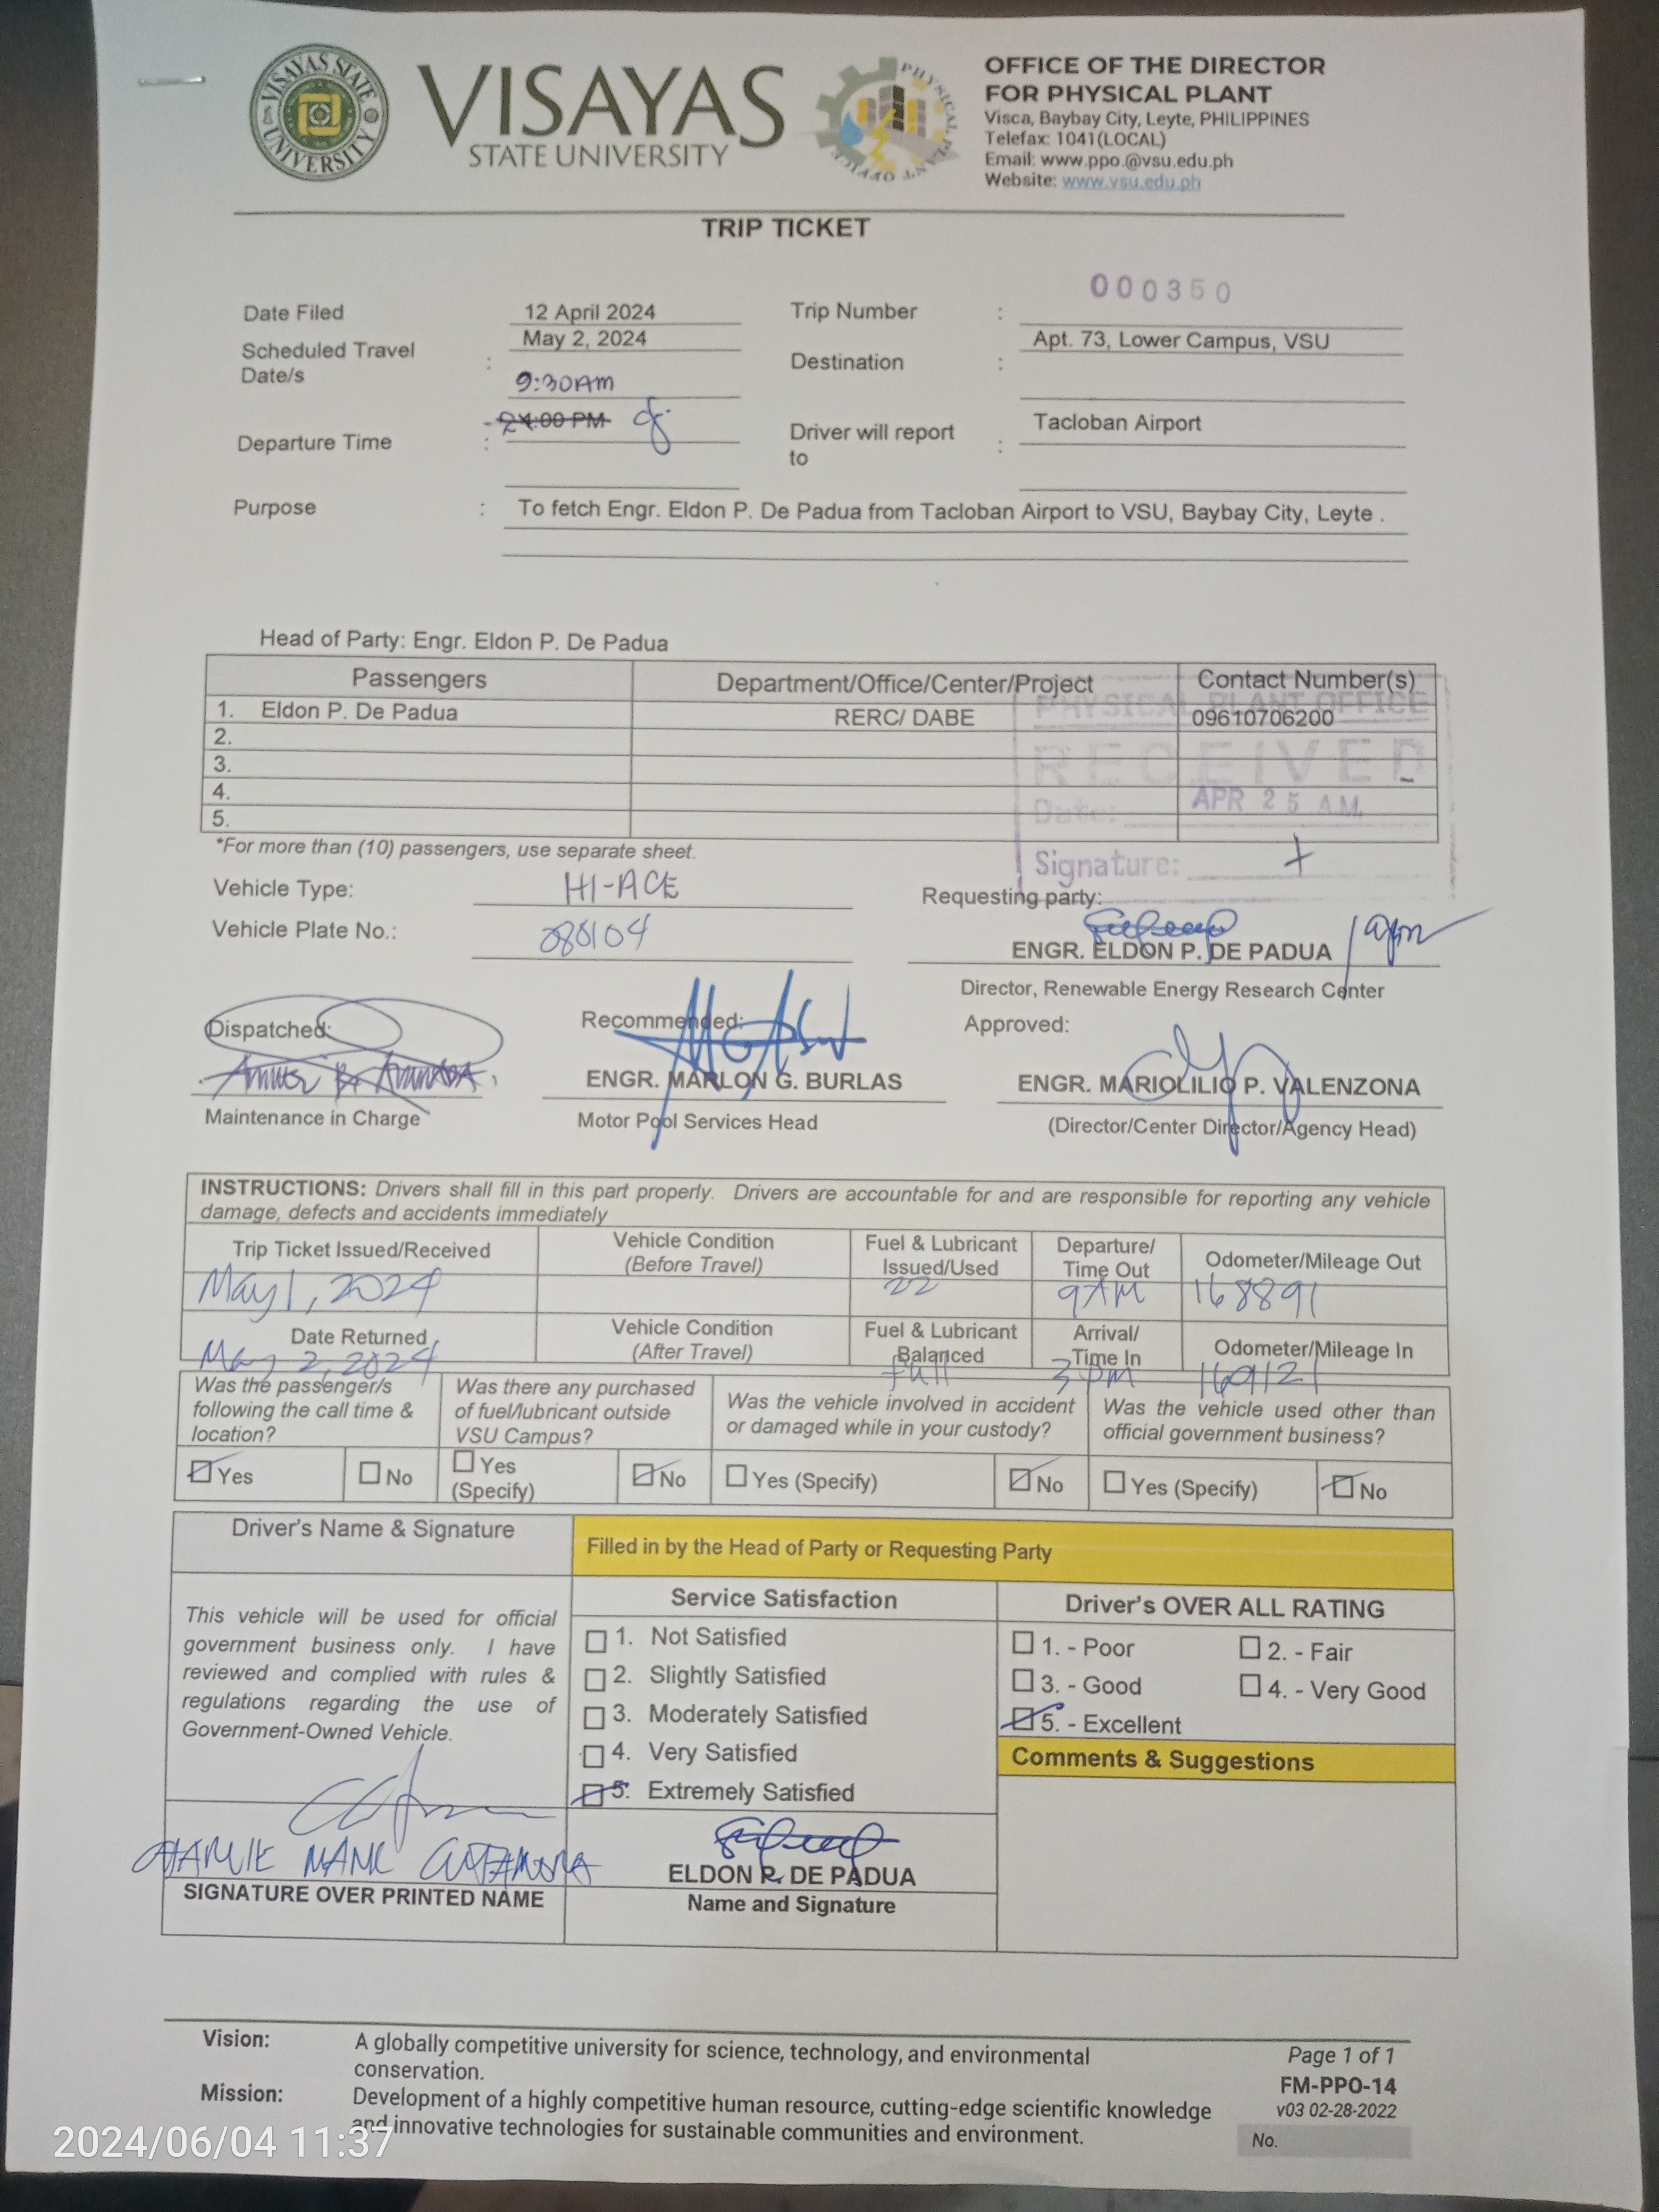 VISAYAS STATE UNIVERSITY
VISAYAS
STATE UNIVERSITY
PHYSICAL PLANT OFFICE
OFFICE OF THE DIRECTOR
FOR PHYSICAL PLANT
Visca, Baybay City, Leyte, PHILIPPINES
Telefax: 1041(LOCAL)
Email: www.ppo.@vsu.edu.ph
Website: www.vsu.edu.ph
TRIP TICKET
000350
Date Filed 12 April 2024 Trip Number :
Scheduled Travel Date/s : May 2, 2024 Destination : Apt. 73, Lower Campus, VSU
9:30AM
Departure Time : Driver will report to : Tacloban Airport
Purpose : To fetch Engr. Eldon P. De Padua from Tacloban Airport to VSU, Baybay City, Leyte .
Head of Party: Engr. Eldon P. De Padua
Passengers Department/Office/Center/Project Contact Number(s)
1. Eldon P. De Padua RERC/ DABE 09610706200
2.
3.
4.
5.
PHYSICAL PLANT OFFICE
RECEIVED
Date: APR 25 A.M.
Signature:
*For more than (10) passengers, use separate sheet.
Vehicle Type: HI-ACE
Requesting party:
Vehicle Plate No.:
ENGR. ELDON P. DE PADUA
Director, Renewable Energy Research Center
Dispatched: Recommended: Approved:
ENGR. MARLON G. BURLAS ENGR. MARIOLILIO P. VALENZONA
Maintenance in Charge Motor Pool Services Head (Director/Center Director/Agency Head)
INSTRUCTIONS: Drivers shall fill in this part properly. Drivers are accountable for and are responsible for reporting any vehicle
damage, defects and accidents immediately
Trip Ticket Issued/Received Vehicle Condition (Before Travel) Fuel & Lubricant Issued/Used Departure/ Time Out Odometer/Mileage Out
May 1, 2024 22 9AM 168891
Date Returned Vehicle Condition (After Travel) Fuel & Lubricant Balanced Arrival/ Time In Odometer/Mileage In
May 2, 2024 full 3pm 169121
Was the passenger/s following the call time & location? Was there any purchased of fuel/lubricant outside VSU Campus? Was the vehicle involved in accident or damaged while in your custody? Was the vehicle used other than official government business?
Yes No Yes (Specify) No Yes (Specify) No Yes (Specify) No
Driver's Name & Signature
Filled in by the Head of Party or Requesting Party
This vehicle will be used for official
government business only. I have
reviewed and complied with rules &
regulations regarding the use of
Government-Owned Vehicle.
Service Satisfaction
1. Not Satisfied
2. Slightly Satisfied
3. Moderately Satisfied
4. Very Satisfied
5. Extremely Satisfied
Driver's OVER ALL RATING
1. - Poor 2. - Fair
3. - Good 4. - Very Good
5. - Excellent
Comments & Suggestions
SIGNATURE OVER PRINTED NAME
ELDON P. DE PADUA
Name and Signature
Vision: A globally competitive university for science, technology, and environmental
conservation.
Mission: Development of a highly competitive human resource, cutting-edge scientific knowledge
and innovative technologies for sustainable communities and environment.
Page 1 of 1
FM-PPO-14
v03 02-28-2022
No.
2024/06/04 11:37